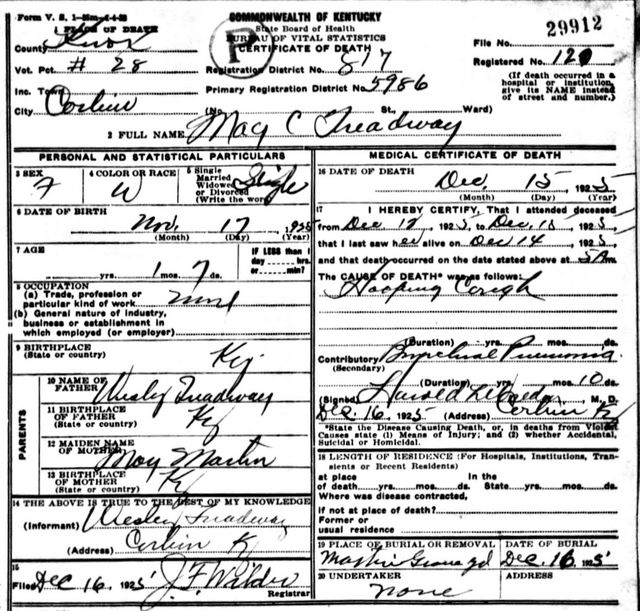 Form V. S. 1-
COMMONWEALTH OF KENTUCKY
State Board of Health
BUREAU OF VITAL STATISTICS
CERTIFICATE OF DEATH
29912
1 PLACE OF DEATH
County Knox
File No.
P
Vot. Pct. # 28
Registration District No. 817
Registered No. 120
Inc. Town
Primary Registration District No. 5986
(If death occurred in a hospital or institution, give its NAME instead of street and number.)
City Corbin
(No. St., Ward)
2 FULL NAME May C Treadway
PERSONAL AND STATISTICAL PARTICULARS
3 SEX F
4 COLOR OR RACE W
5 Single Married Widowed or Divorced (Write the word) Single
6 DATE OF BIRTH
Nov. 17, 1925
(Month) (Day) (Year)
7 AGE
yrs. 1 mos. 7 ds.
IF LESS than 1 day hrs. or min.
8 OCCUPATION
(a) Trade, profession or particular kind of work
(b) General nature of industry, business or establishment in which employed (or employer)
9 BIRTHPLACE
(State or country) Ky.
PARENTS
10 NAME OF FATHER Wesley Treadway
11 BIRTHPLACE OF FATHER
(State or country) Ky
12 MAIDEN NAME OF MOTHER May Martin
13 BIRTHPLACE OF MOTHER
(State or country) Ky
14 THE ABOVE IS TRUE TO THE BEST OF MY KNOWLEDGE
(Informant) Wesley Treadway
(Address) Corbin Ky
15
Filed Dec 16, 1925 J. F. Wilder
Registrar
MEDICAL CERTIFICATE OF DEATH
16 DATE OF DEATH
Dec. 15, 1925
(Month) (Day) (Year)
17 I HEREBY CERTIFY, That I attended deceased
from Dec 12, 1925, to Dec 15, 1925,
that I last saw her alive on Dec 14, 1925,
and that death occurred on the date stated above at 5 AM.
The CAUSE OF DEATH* was as follows:
Hooping Cough
(Duration) yrs. mos. ds.
Contributory Pneumonia
(Secondary)
(Duration) yrs. mos. 10 ds.
(Signed) Harold M. D.
Dec. 16, 1925 (Address) Corbin Ky
*State the Disease Causing Death, or, in deaths from Violent Causes state (1) Means of Injury; and (2) whether Accidental, Suicidal or Homicidal.
18 LENGTH OF RESIDENCE (For Hospitals, Institutions, Transients or Recent Residents)
At place of death yrs. mos. ds. In the State yrs. mos. ds.
Where was disease contracted,
if not at place of death?
Former or usual residence
19 PLACE OF BURIAL OR REMOVAL
Martin Grave yd
DATE OF BURIAL
Dec. 16, 1925
20 UNDERTAKER
none
ADDRESS